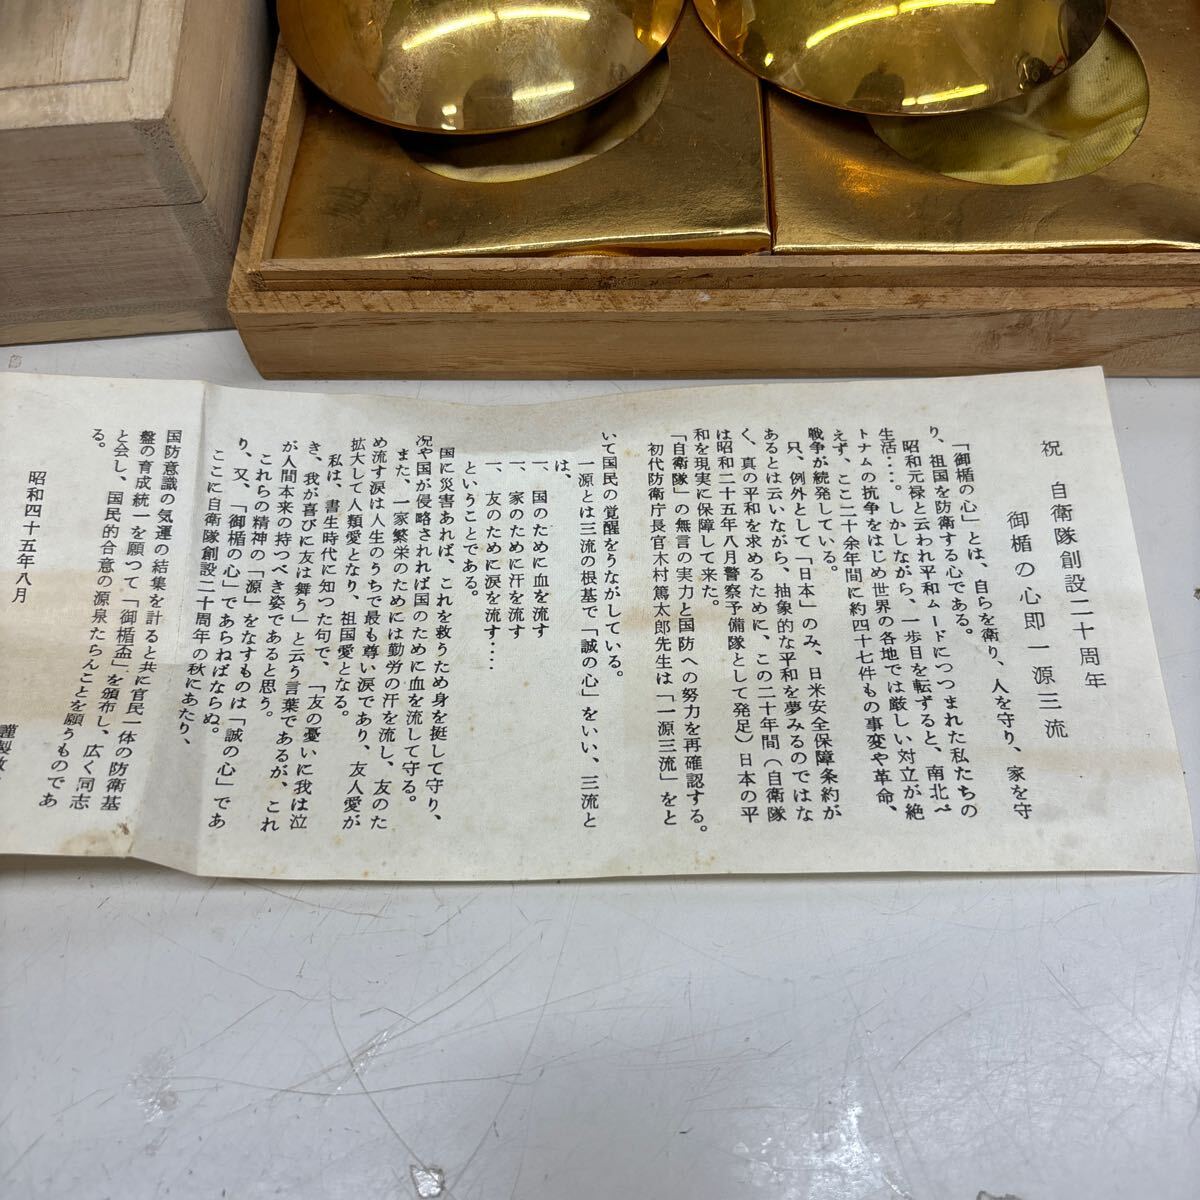 祝　自衛隊創設二十周年
御楯の心即一源三流
「御楯の心」とは、自らを衛り、人を守り、家を守
り、祖国を防衛する心である。
昭和元禄と云われ平和ムードにつつまれた私たちの
生活‥‥。しかしながら、一歩目を転ずると、南北ベ
トナムの抗争をはじめ世界の各地では厳しい対立が絶
えず、ここ二十余年間に約四十七件もの事変や革命、
戦争が続発している。
只、例外として「日本」のみ、日米安全保障条約が
あるとは云いながら、抽象的な平和を夢みるのではな
く、真の平和を求めるために、この二十年間（自衛隊
は昭和二十五年八月警察予備隊として発足）日本の平
和を現実に保障して来た。
「自衛隊」の無言の実力と国防への努力を再確認する。
初代防衛庁長官木村篤太郎先生は「一源三流」をと
いて国民の覚醒をうながしている。
一源とは三流の根基で「誠の心」をいい、三流と
は、
一、国のために血を流す
一、家のために汗を流す
一、友のために涙を流す‥‥
ということである。
国に災害あれば、これを救うため身を挺して守り、
況や国が侵略されれば国のために血を流して守る。
また、一家繁栄のためには勤労の汗を流し、友のた
め流す涙は人生のうちで最も尊い涙であり、友人愛が
拡大して人類愛となり、祖国愛となる。
私は、書生時代に知つた句で、「友の憂いに我は泣
き、我が喜びに友は舞う」と云う言葉であるが、これ
が人間本来の持つべき姿であると思う。
これらの精神の「源」をなすものは「誠の心」であ
り、又、「御楯の心」であらねばならぬ。
ここに自衛隊創設二十周年の秋にあたり、
国防意識の気運の結集を計ると共に官民一体の防衛基
盤の育成統一を願つて「御楯盃」を頒布し、広く同志
と会し、国民的合意の源泉たらんことを願うものであ
る。
昭和四十五年八月
謹製